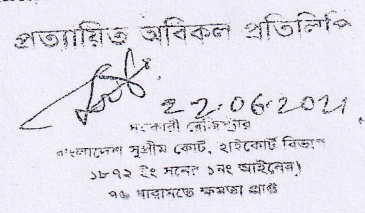 প্রত্যায়িত অবিকল প্রতিলিপি
22.06.2021
সহকারী রেজিস্ট্রার
বাংলাদেশ সুপ্রীম কোর্ট, হাইকোর্ট বিভাগ
১৮৭২ ইং সনের ১নং আইনের)
৭৬ ধারামতে ক্ষমতা প্রাপ্ত